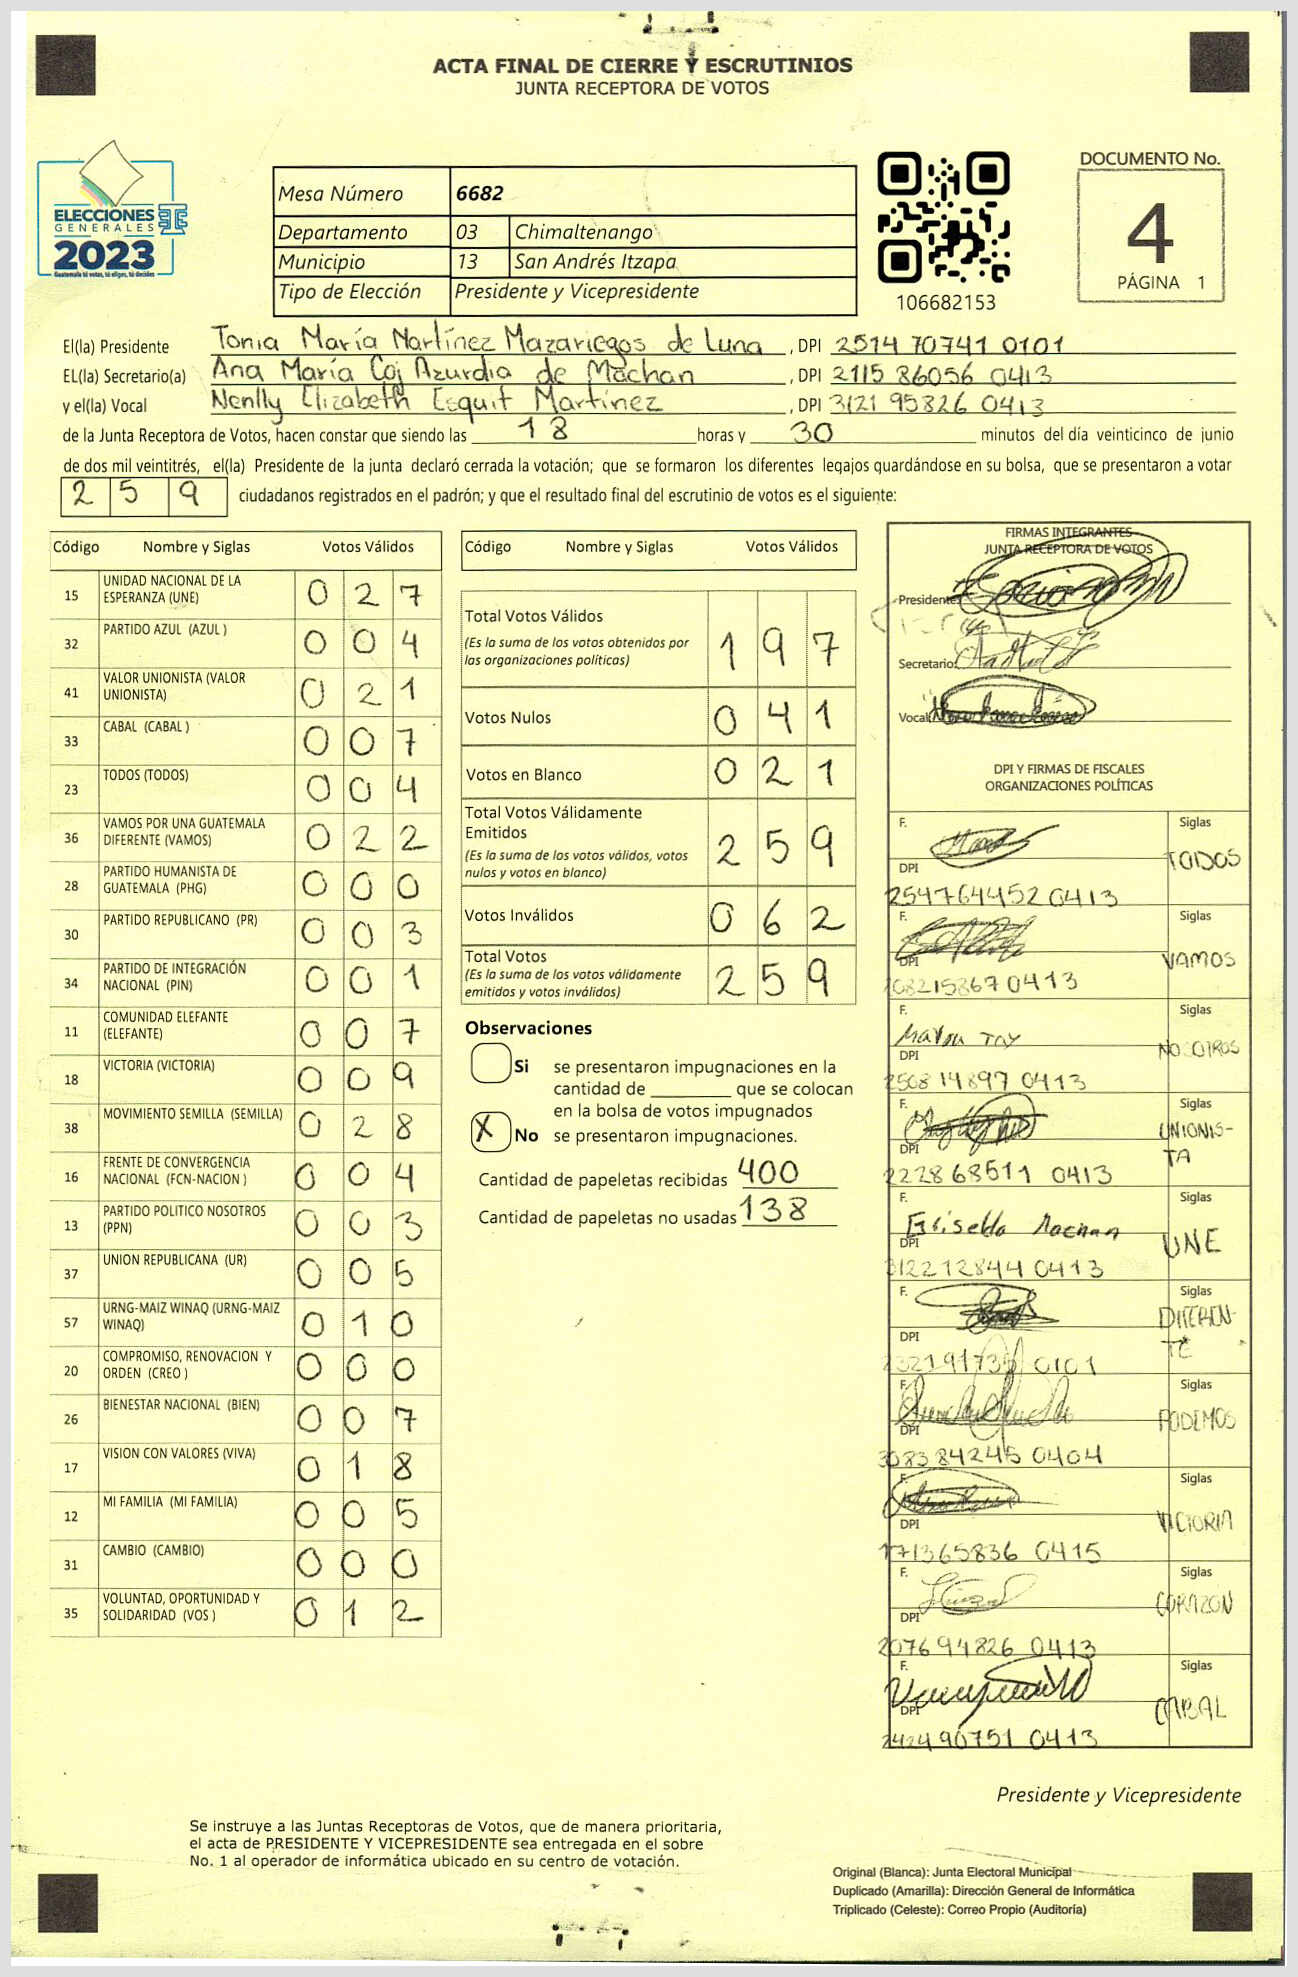 ACTA FINAL DE CIERRE Y ESCRUTINIOS
JUNTA RECEPTORA DE VOTOS
ELECCIONES
GENERALES
2023
Guatemala tú votas, tú eliges, tú decides
Mesa Número 6682
Departamento 03 Chimaltenango
Municipio 13 San Andrés Itzapa
Tipo de Elección Presidente y Vicepresidente
106682153
DOCUMENTO No.
4
PÁGINA 1
El(la) Presidente Tonia María Martínez Mazariegos de Luna, DPI 2514 70741 0101
EL(la) Secretario(a) Ana María Coj Azurdia de Machan, DPI 2115 86056 0413
y el(la) Vocal Nenlly Elizabeth Esquit Martínez, DPI 3121 95826 0413
de la Junta Receptora de Votos, hacen constar que siendo las 18 horas y 30 minutos del día veinticinco de junio
de dos mil veintitrés, el(la) Presidente de la junta declaró cerrada la votación; que se formaron los diferentes legajos guardándose en su bolsa, que se presentaron a votar
2 5 9 ciudadanos registrados en el padrón; y que el resultado final del escrutinio de votos es el siguiente:
Código Nombre y Siglas Votos Válidos
15 UNIDAD NACIONAL DE LA ESPERANZA (UNE) 0 2 7
32 PARTIDO AZUL (AZUL ) 0 0 4
41 VALOR UNIONISTA (VALOR UNIONISTA) 0 2 1
33 CABAL (CABAL ) 0 0 7
23 TODOS (TODOS) 0 0 4
36 VAMOS POR UNA GUATEMALA DIFERENTE (VAMOS) 0 2 2
28 PARTIDO HUMANISTA DE GUATEMALA (PHG) 0 0 0
30 PARTIDO REPUBLICANO (PR) 0 0 3
34 PARTIDO DE INTEGRACIÓN NACIONAL (PIN) 0 0 1
11 COMUNIDAD ELEFANTE (ELEFANTE) 0 0 7
18 VICTORIA (VICTORIA) 0 0 9
38 MOVIMIENTO SEMILLA (SEMILLA) 0 2 8
16 FRENTE DE CONVERGENCIA NACIONAL (FCN-NACION ) 0 0 4
13 PARTIDO POLITICO NOSOTROS (PPN) 0 0 3
37 UNION REPUBLICANA (UR) 0 0 5
57 URNG-MAIZ WINAQ (URNG-MAIZ WINAQ) 0 1 0
20 COMPROMISO, RENOVACION Y ORDEN (CREO ) 0 0 0
26 BIENESTAR NACIONAL (BIEN) 0 0 7
17 VISION CON VALORES (VIVA) 0 1 8
12 MI FAMILIA (MI FAMILIA) 0 0 5
31 CAMBIO (CAMBIO) 0 0 0
35 VOLUNTAD, OPORTUNIDAD Y SOLIDARIDAD (VOS ) 0 1 2
Código Nombre y Siglas Votos Válidos
Total Votos Válidos 1 9 7
(Es la suma de los votos obtenidos por
las organizaciones políticas)
Votos Nulos 0 4 1
Votos en Blanco 0 2 1
Total Votos Válidamente
Emitidos 2 5 9
(Es la suma de los votos válidos, votos
nulos y votos en blanco)
Votos Inválidos 0 6 2
Total Votos 2 5 9
(Es la suma de los votos válidamente
emitidos y votos inválidos)
Observaciones
Si se presentaron impugnaciones en la
cantidad de ________ que se colocan
en la bolsa de votos impugnados
X No se presentaron impugnaciones.
Cantidad de papeletas recibidas 400
Cantidad de papeletas no usadas 138
FIRMAS INTEGRANTES
JUNTA RECEPTORA DE VOTOS
Presidente:
Secretario:
Vocal:
DPI Y FIRMAS DE FISCALES
ORGANIZACIONES POLÍTICAS
F. Siglas
DPI TODOS
254764452 0413
F. Siglas
DPI VAMOS
0413
F. Siglas
DPI NOSOTROS
250814897 0413
F. Siglas
DPI UNIONIS-
TA
222868511 0413
F. Siglas
Griselda Machan
DPI UNE
312212844 0413
F. Siglas
DPI DIFEREN-
TE
0101
F. Siglas
DPI PODEMOS
308384245 0404
F. Siglas
DPI VICTORIA
171365836 0415
F. Siglas
DPI CORAZON
207694826 0413
F. Siglas
DPI CABAL
242490751 0413
Presidente y Vicepresidente
Se instruye a las Juntas Receptoras de Votos, que de manera prioritaria,
el acta de PRESIDENTE Y VICEPRESIDENTE sea entregada en el sobre
No. 1 al operador de informática ubicado en su centro de votación.
Original (Blanca): Junta Electoral Municipal
Duplicado (Amarilla): Dirección General de Informática
Triplicado (Celeste): Correo Propio (Auditoría)